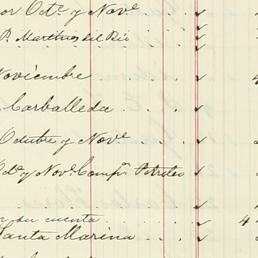 or Oct.e y Nov.e
P. Martinez del Rio
Noviembre
Carballeda
Octubre y Nov.e
Oct.e y Nov.e Comp.a
or su cuenta 4
Santa Marina